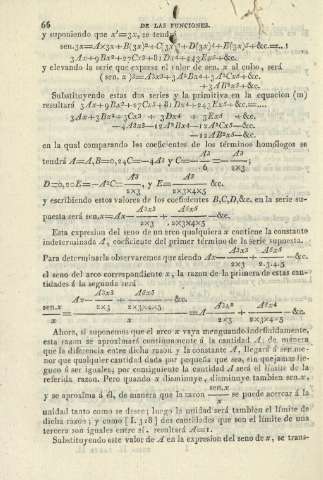 66 DE LAS FUNCIONES.
y suponiendo que x'=3x, se tendrá
sen.3x=A×3x+B(3x)²+C(3x)³+D(3x)⁴+E(3x)⁵+&c.=...
3Ax+9Bx²+27Cx³+81Dx⁴+243Ex⁵+&c.
y elevando la serie que expresa el valor de sen. x al cubo, será
(sen. x)³=A³x³+3A²Bx⁴+3A²Cx⁵+&c.
+3AB²x⁵+&c.
Substituyendo estas dos series y la primitiva en la equacion (m)
resultará 3Ax+9Bx²+27Cx³+81Dx⁴+243Ex⁵+&c.=....
3Ax+3Bx²+3Cx³ + 3Dx⁴ + 3Ex⁵ +&c.
—4A³x³—12A²Bx⁴—12A²Cx⁵—&c.
—12AB²x⁵—&c.
en la qual comparando los coeficientes de los términos homólogos se
tendrá A=A,B=0,24C=—4A³ y C=—A³/6=—A³/2×3;
D=0,20E=—A²C=A⁵/2×3, y E=A⁵/2×3×4×5 &c.
y escribiendo estos valores de los coeficientes B,C,D,&c. en la serie su-
puesta será sen.x=Ax—A³x³/2×3+A⁵x⁵/2×3×4×5 &c.
Esta expresion del seno de un arco qualquiera x contiene la constante
indeterminada A, coeficiente del primer término de la serie supuesta.
Para determinarla observaremos que siendo Ax—A³x³/2×3+A⁵x⁵/2.3.4.5—&c.
el seno del arco correspondiente x, la razon de la primera de estas can-
tidades á la segunda será
sen.x/x=Ax—A³x³/2×3+A⁵x⁵/2×3×4×5—&c./x=A—A³x²/2×3+A⁵x⁴/2×3×4×5—&c.
Ahora, si suponemos que el arco x vaya menguando indefinidamente,
esta razon se aproximará continuamente á la cantidad A; de manera
que la diferencia entre dicha razon y la constante A, llegará á ser me-
nor que qualquier cantidad dada por pequeña que sea, sin que jamas lle-
guen á ser iguales; por consiguiente la cantidad A será el límite de la
referida razon. Pero quando x disminuye, disminuye tambien sen.x,
y se aproxima á él, de manera que la razon sen.x/x se puede acercar á la
unidad tanto como se desee; luego la unidad será tambien el límite de
dicha razon; y como [I.318] dos cantidades que son el límite de una
tercera son iguales entre sí, resultará A=1.
Substituyendo este valor de A en la expresion del seno de x, se trans-